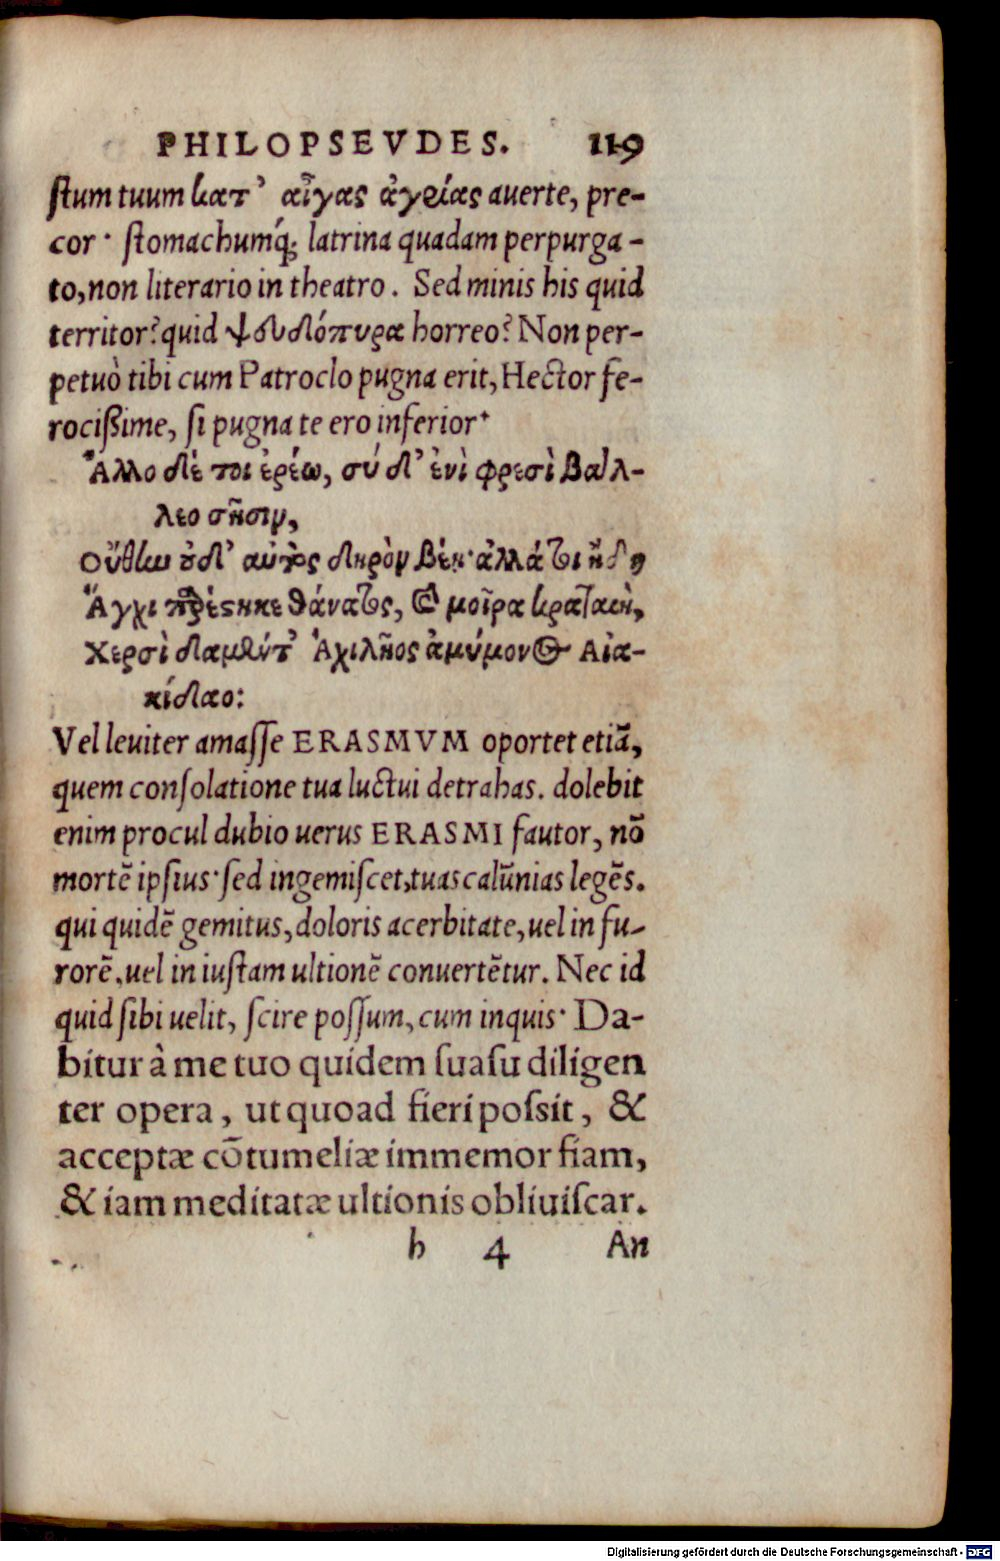 PHILOPSEVDES. 119
ſtum tuum κατ' αἶγας ἀγρίας auerte, pre-
cor· ſtomachumq́; latrina quadam perpurga-
to, non literario in theatro. Sed minis his quid
territor? quid ψευδόπυρα horreo? Non per-
petuò tibi cum Patroclo pugna erit, Hector fe-
rociſsime, ſi pugna te ero inferior·
Ἄλλο δέ τοι ἐρέω, σύ δ' ἐνὶ φρεσὶ βαλ-
λεο σῆσιν,
Οὔθην οὐδ' αὐτὸς δηρὸν βέῃ· ἀλλά τοι ἤδη
Ἄγχι παρέστηκε θάνατος, καὶ μοῖρα κραταιὴ,
Χερσὶ δαμέντ' Ἀχιλῆος ἀμύμονος Αἰα-
κίδαο:
Vel leuiter amaſſe ERASMVM oportet etiã,
quem conſolatione tua luctui detrahas. dolebit
enim procul dubio uerus ERASMI fautor, nõ
mortẽ ipſius· ſed ingemiſcet, tuas calũnias legẽs.
qui quidẽ gemitus, doloris acerbitate, uel in fu-
rorẽ, uel in iuſtam ultionẽ conuertẽtur. Nec id
quid ſibi uelit, ſcire poſſum, cum inquis· Da-
bitur à me tuo quidem ſuaſu diligen
ter opera, ut quoad fieri poſsit, &
acceptæ cõtumeliæ immemor fiam,
& iam meditatæ ultionis obliuiſcar.
h 4 An
Digitalisierung gefördert durch die Deutsche Forschungsgemeinschaft - DFG